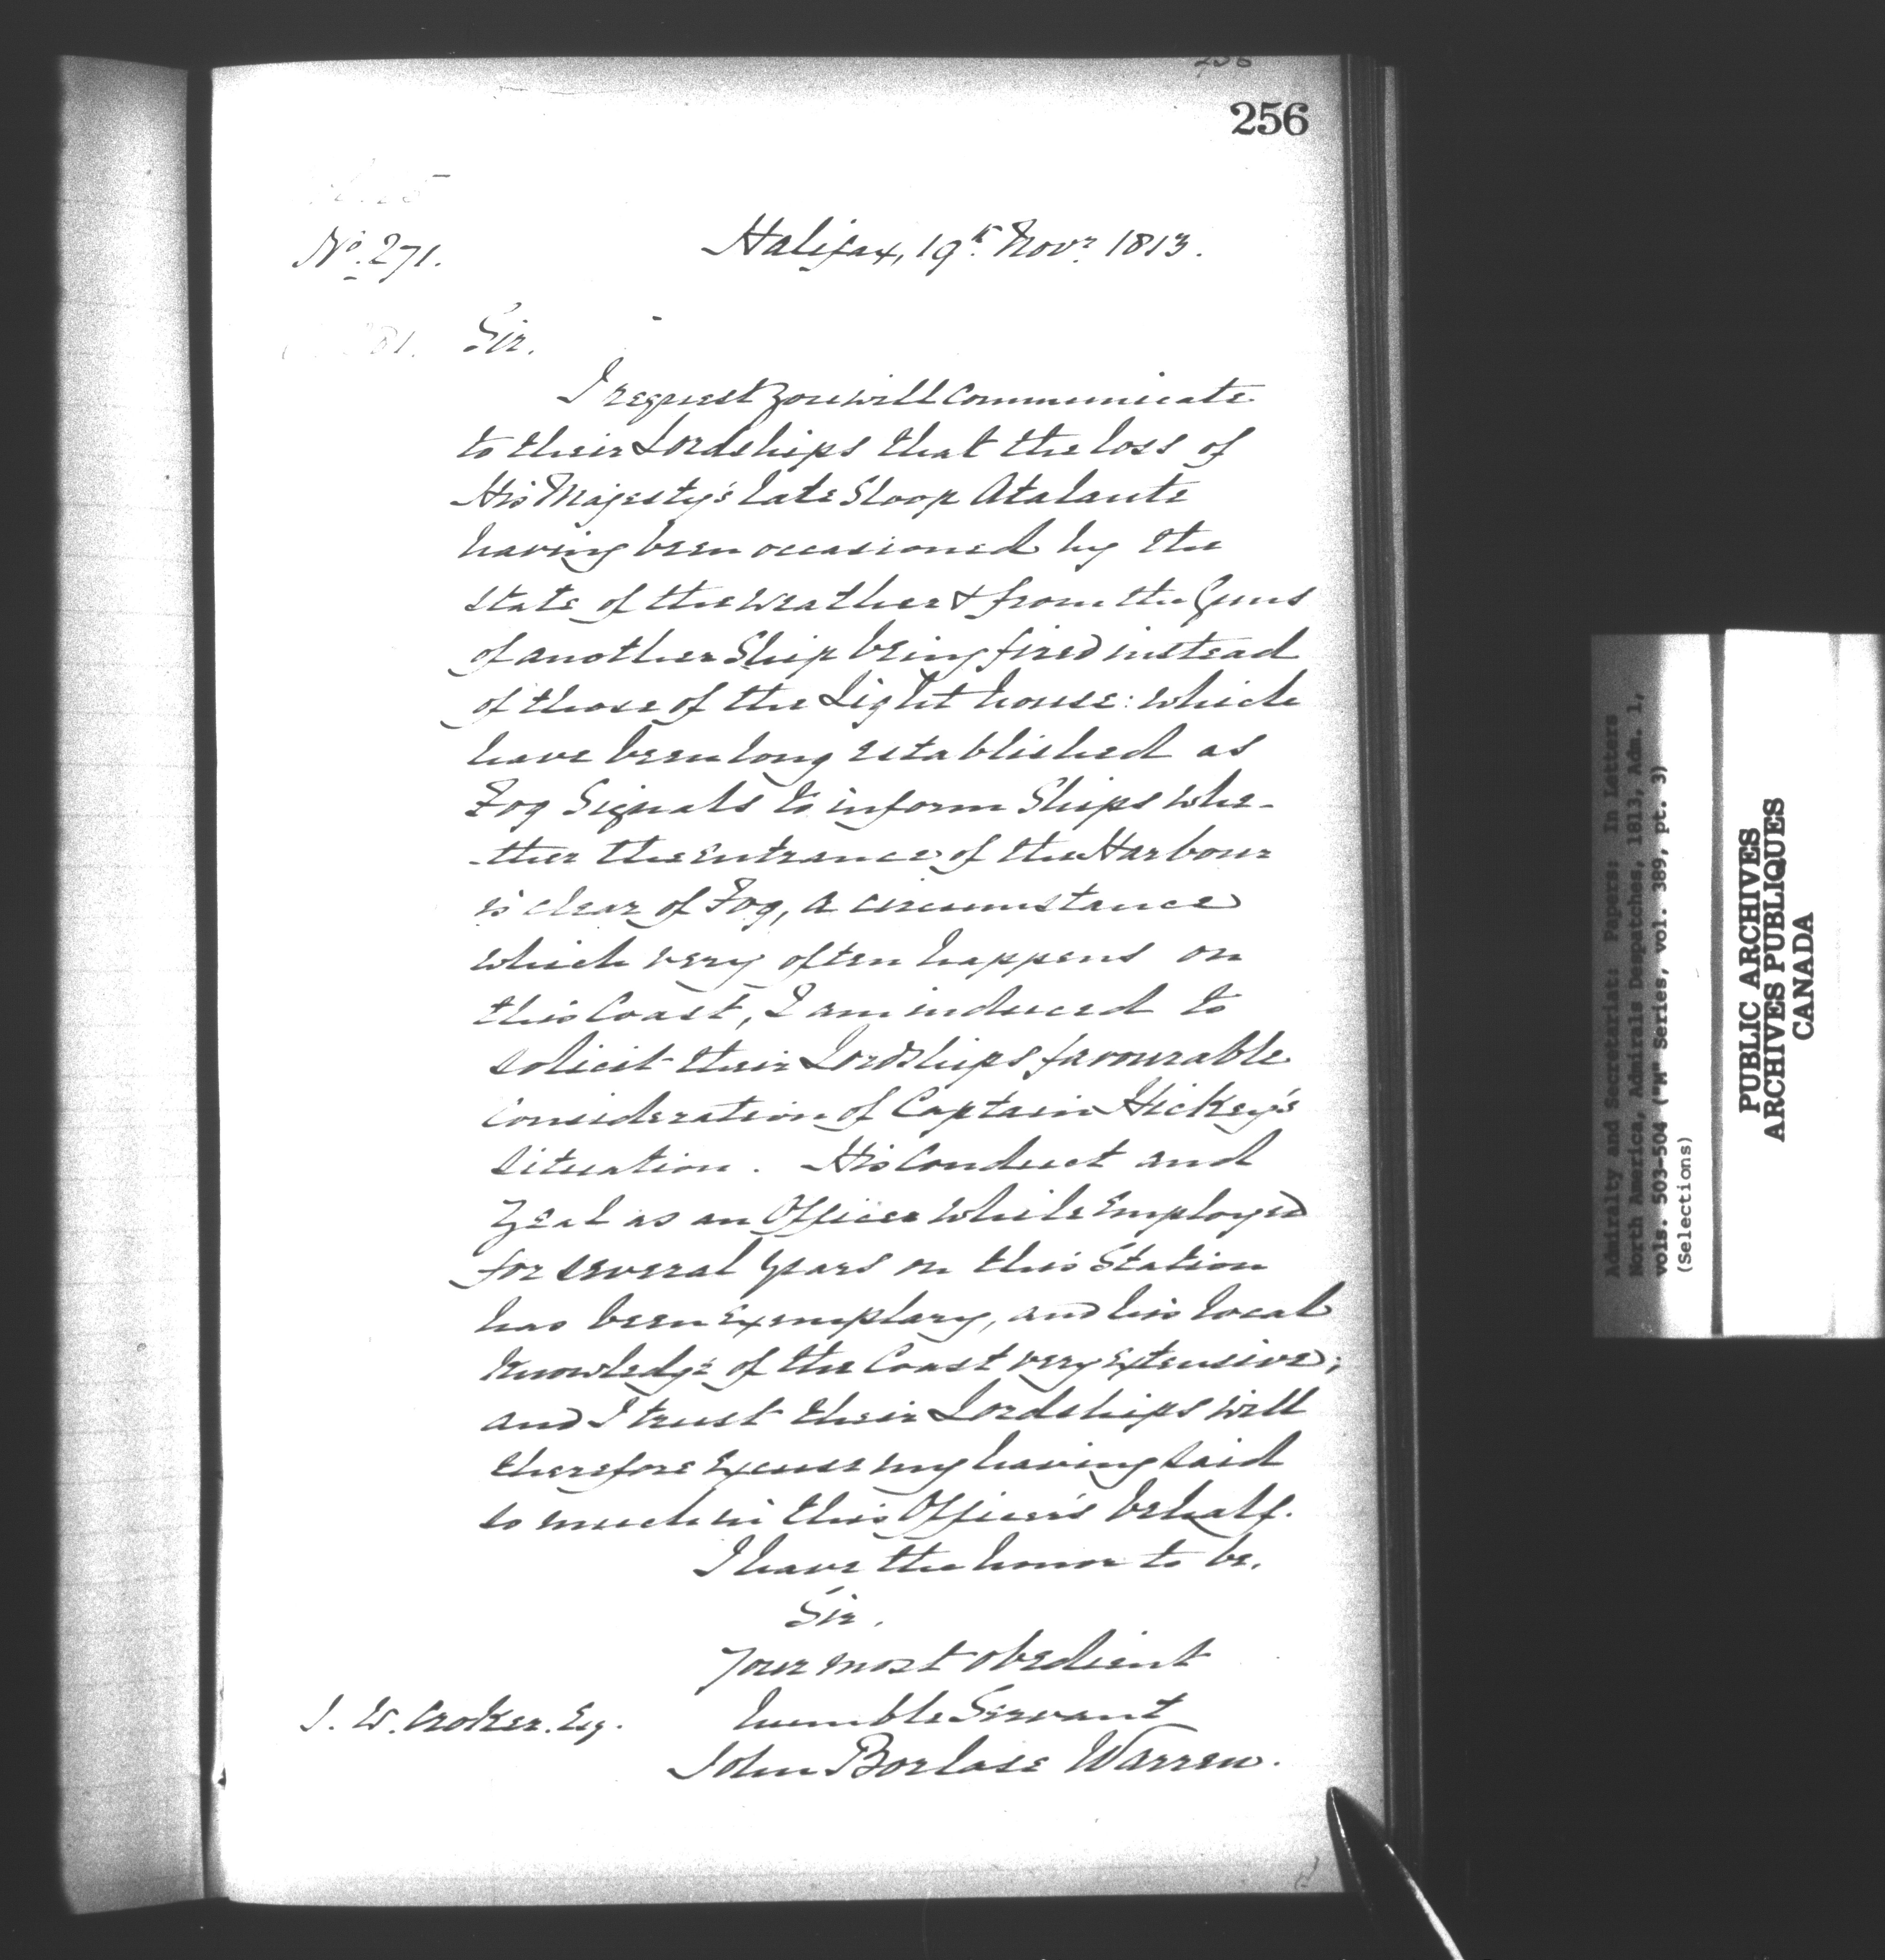 256
No. 271.
Halifax, 19th Novr 1813.
Sir.
I request you will communicate
to their Lordships that the loss of
His Majesty's late Sloop Atalante
having been occasioned by the
state of the weather & from the Guns
of another Ship being fired instead
of those of the Light house: which
have been long established as
Fog Signals to inform Ships whe-
-ther the entrance of the Harbour
is clear of Fog, a circumstance
which very often happens on
this Coast, I am induced to
solicit their Lordships favourable
consideration of Captain Hickey's
situation. His Conduct and
Zeal as an Officer while employed
for several years on this Station
has been exemplary, and his local
Knowledge of the Coast very extensive;
and I trust their Lordships will
therefore excuse my having said
so much in this Officer's behalf.
I have the honor to be,
Sir,
Your most obedient
humble Servant
J. W. Croker. Esq.
John Borlase Warren.
Admiralty and Secretariat: Papers: In Letters
North America, Admirals Despatches, 1813, Adm. 1,
vols. 503-504 ("M" Series, vol. 389, pt. 3)
(Selections)
PUBLIC ARCHIVES
ARCHIVES PUBLIQUES
CANADA